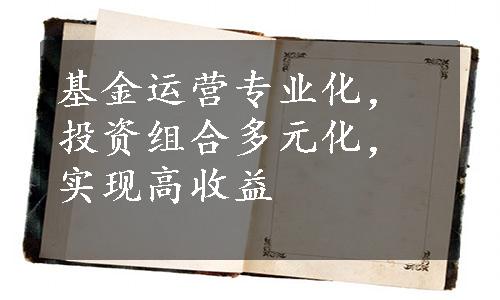 基金运营专业化，
投资组合多元化，
实现高收益